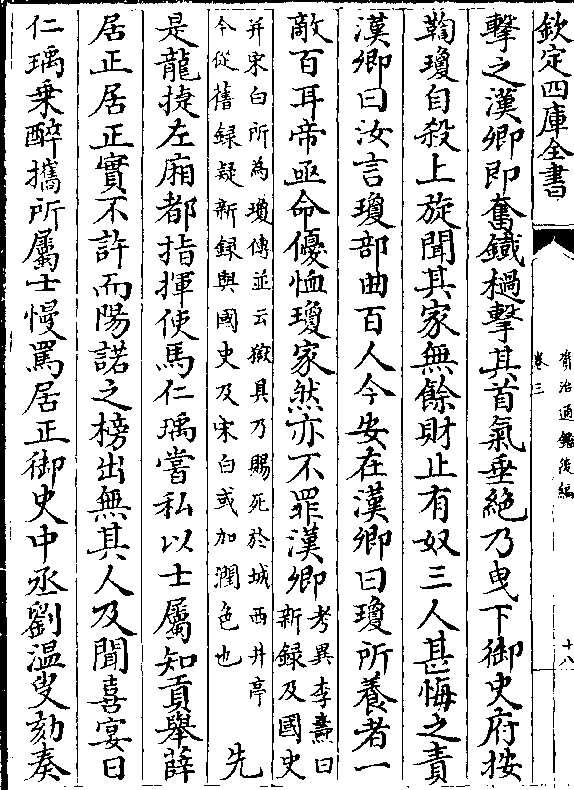 欽定四庫全書
資治通鑑後編
卷三
十八
擊之漢卿即奮鐵檛擊其首氣垂絶乃曳下御史府按
鞫瓊自殺上旋聞其家無餘財止有奴三人甚悔之責
漢卿曰汝言瓊部曲百人今安在漢卿曰瓊所養者一
敵百耳帝亟命優恤瓊家然亦不罪漢卿考異李燾曰新録及國史
并宋白所為瓊傳並云獄具乃賜死於城西井亭今從舊録疑新録與國史及宋白或加潤色也先
是龍捷左廂都指揮使馬仁瑀嘗私以士屬知貢舉薛
居正居正實不許而陽諾之榜出無其人及聞喜宴日
仁瑀乗醉攜所屬士慢罵居正御史中丞劉温叟劾奏